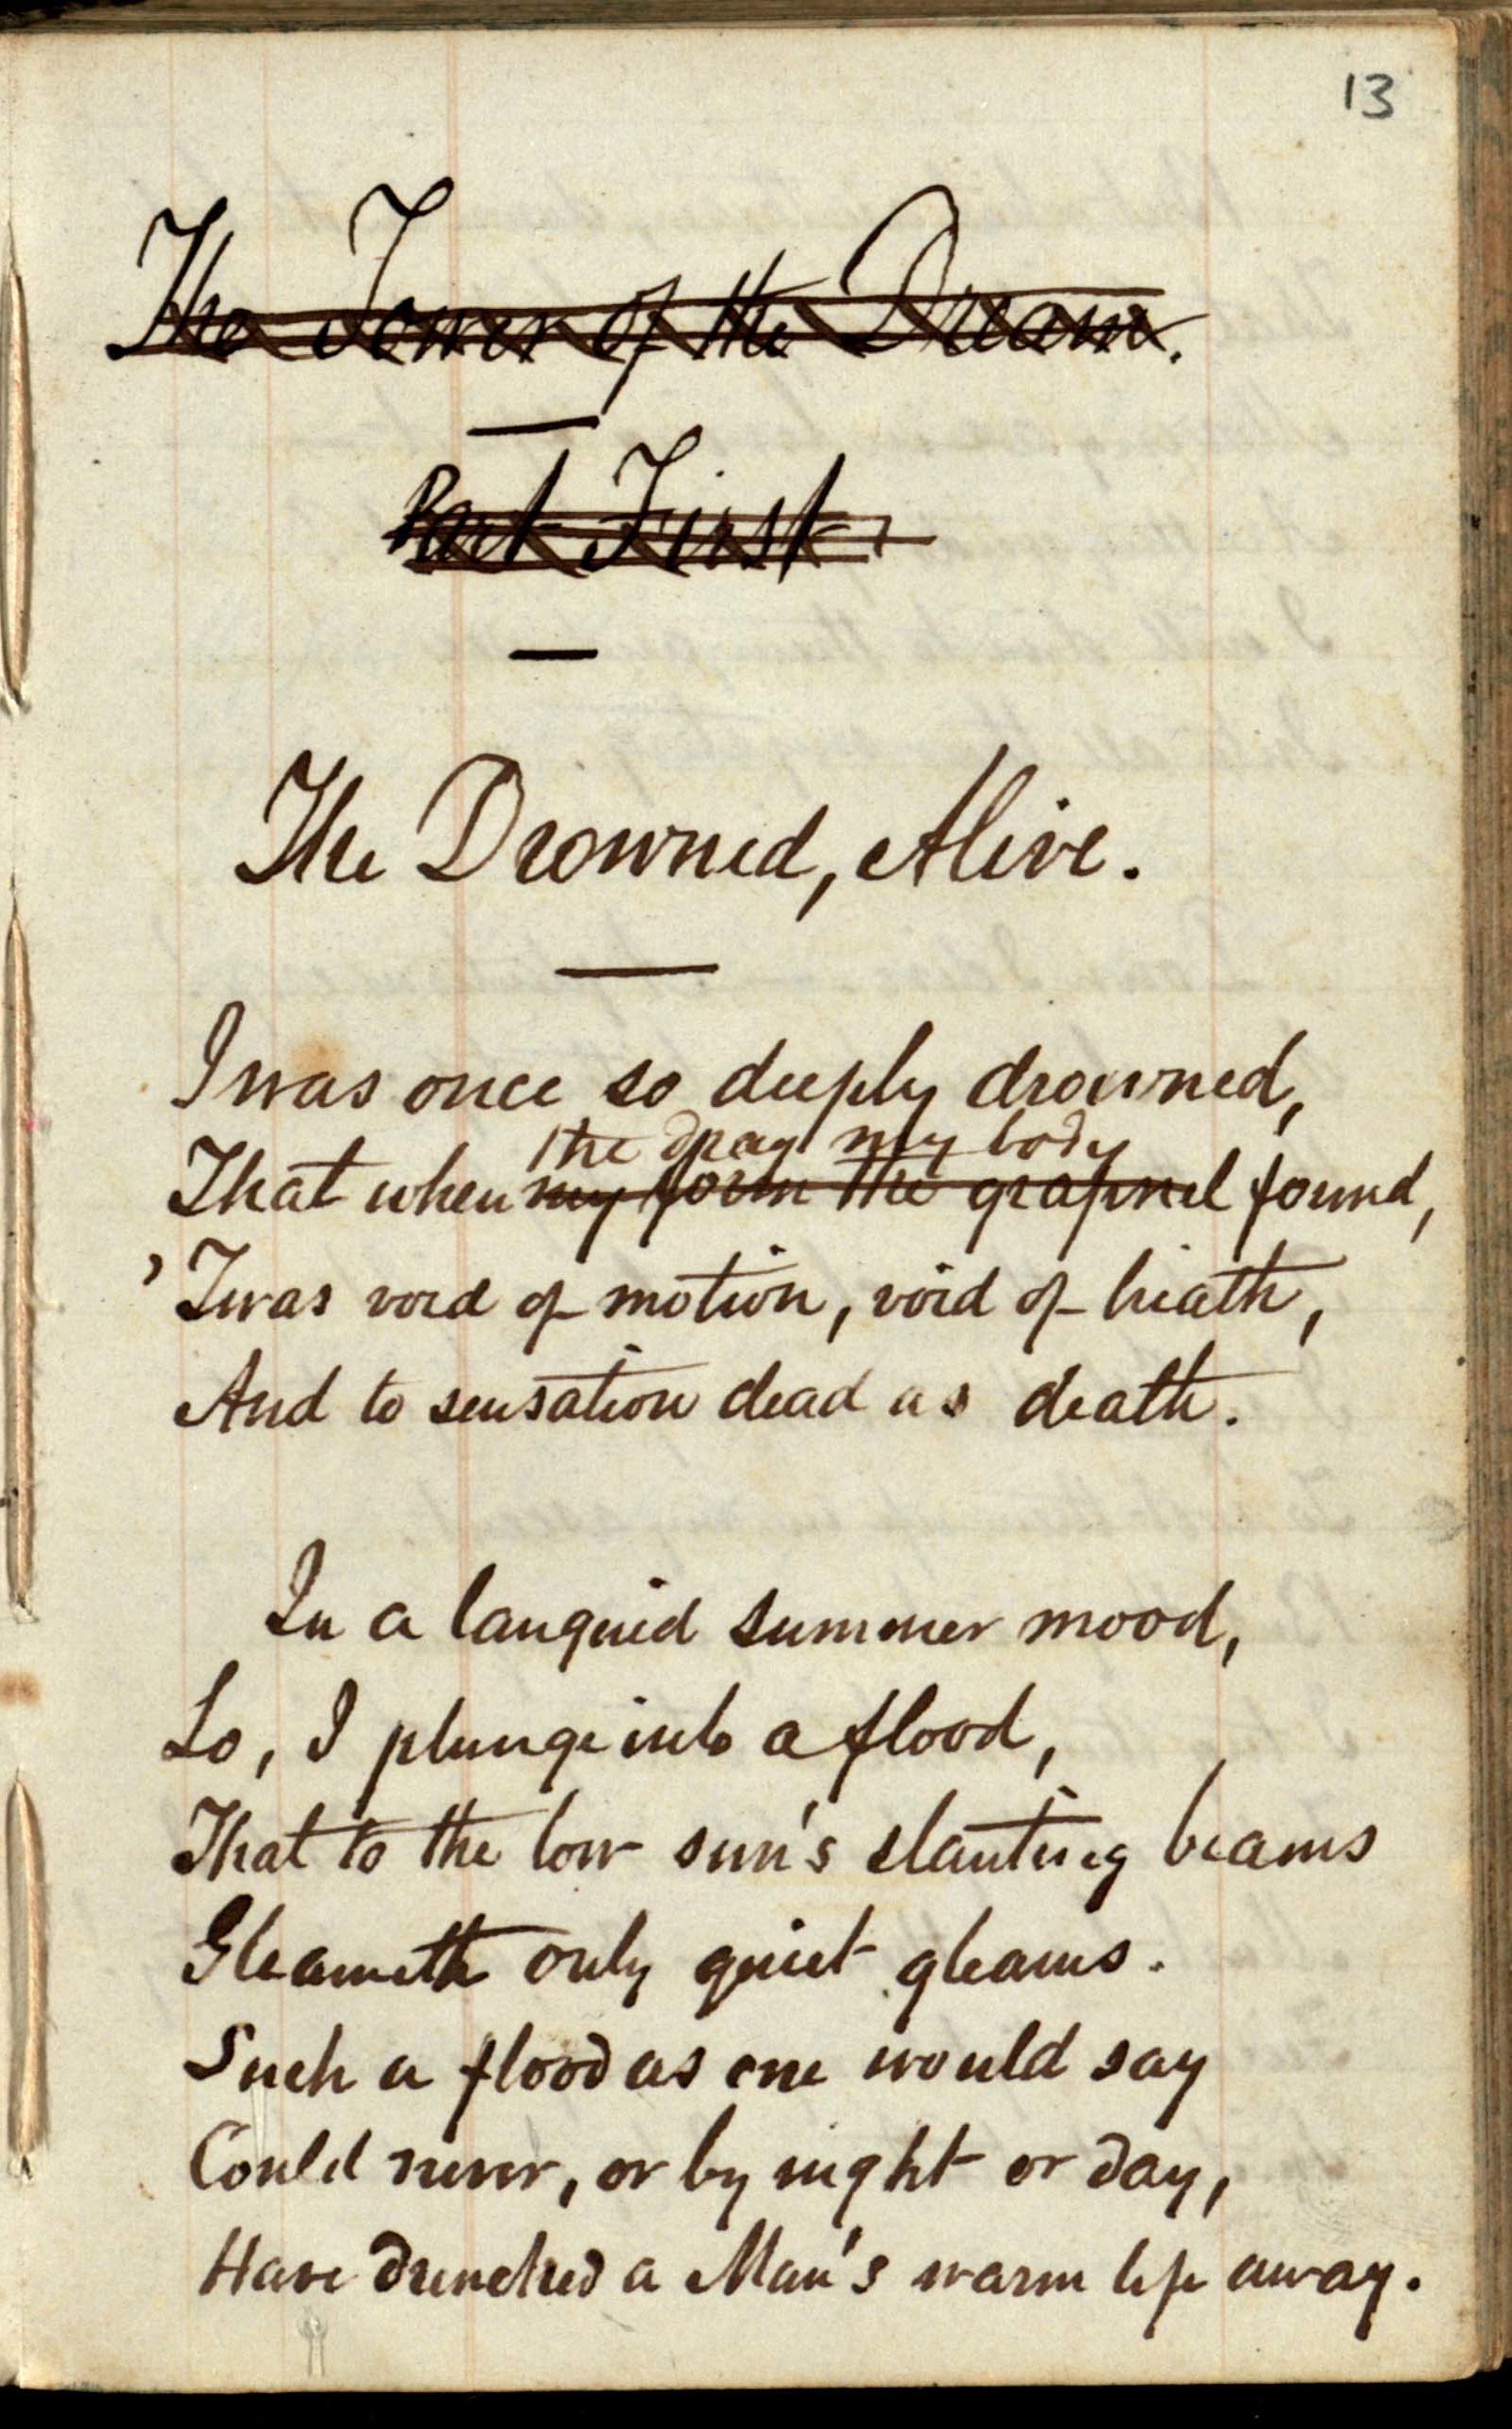 13
The Tower of the Dream.
Part First
The Drowned, Alive.
I was once so deeply drowned,
the drag my body
That when my form the grapnel found,
'Twas void of motion, void of breath,
And to sensation dead as death.
In a languid summer mood,
Lo, I plunge into a flood,
That to the low sun's slanting beams
Gleameth only quiet gleams.
Such a flood as one would say
Could never, or by night or day,
Have drenched a Man's warm life away.